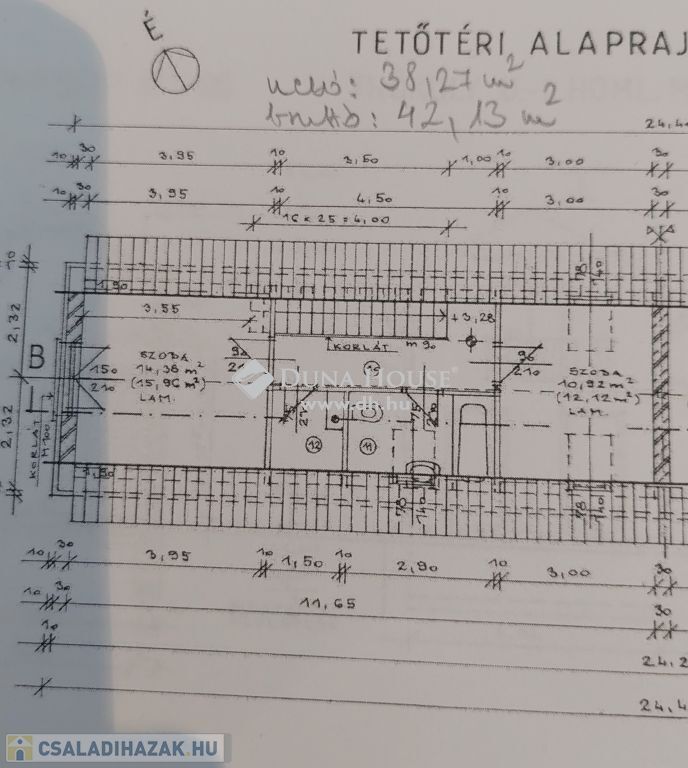 É
TETŐTÉRI ALAPRAJ
nettó: 38,27 m²
bruttó: 42,13 m²
24,4
10 30 3,95 10 3,50 1,00 10 3,00 30
10 30 3,95 10 4,50 10 3,00 30
16 x 25 = 4,00
10
2,32
B
2,32
KORLÁT
M 100
1,90
3,55
+3,28
KORLÁT m 90
150
210
SZOBA
14,36 m²
(15,96 m²)
LAM.
90
10
DUNA HOUSE
www.dh.hu
90
210
SZOBA
10,92 m²
(12,12 m²)
LAM.
75
75
12
11
78
140
78
140
78
140
1,90
10 30 3,95 10 1,50 10 2,90 10 3,00 30
10 30 11,65 30
10 24,2
24,4
CSALADIHAZAK.HU